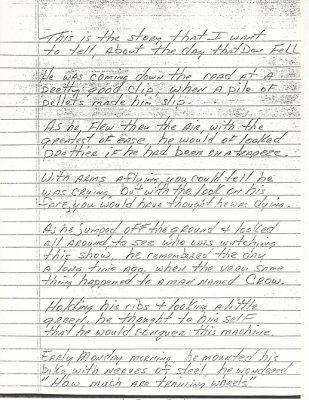 This is the story that I want
to tell about the day that Don Fell
He was coming down the road at a
pretty good clip, when a pile of
pellets made him slip.
As he flew thru the air, with the
greatest of ease he would of looked
prettier if he had been on a trapeze.
With arms aflying you could tell he
was crying, but with the look on his
face, you would have thought he was dying.
As he jumped off the ground & looked
all around to see who was watching
this show, he remembered the day
a long time ago, when the very same
thing happened to a man named Crow.
Holding his ribs & looking a little
green, he thought to him self
that he would conquer this machine.
Early Monday morning, he mounted his
bike, with nerves of steel, he wondered
"How much are training wheels"